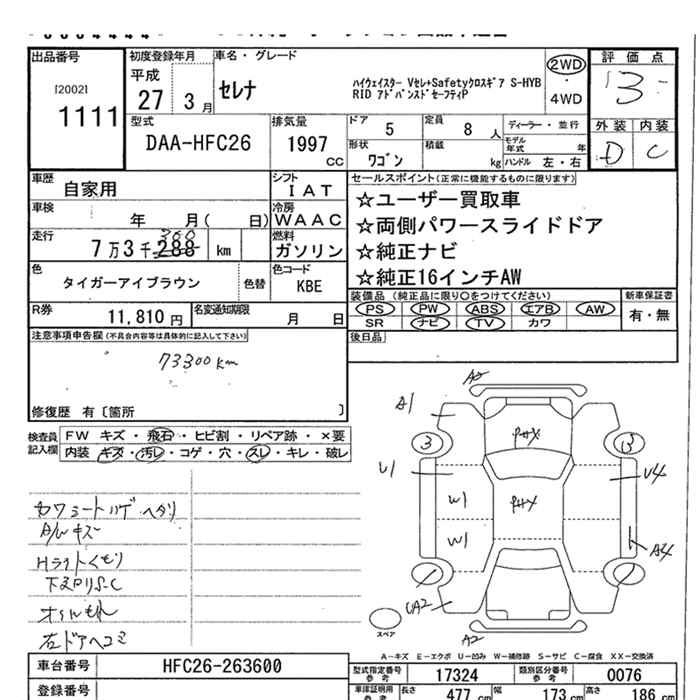 出品番号
[2002]
1111
初度登録年月
平成
27 3 月
車名・グレード
セレナ
ハイウェイスター Vセレ+Safetyクロスギア S-HYB
RID アドバンスドセーフティP
2WD
・
4WD
評価点
3
外装 内装
D C
型式
DAA-HFC26
排気量
1997
cc
ドア
5
定員
8 人
形状
ワゴン
積載
kg
ディーラー・並行
モデル
年式 年
ハンドル 左・右
車歴
自家用
シフト
IAT
車検
年 月( 日)
冷房
WAAC
走行
7万3千288 km
300
燃料
ガソリン
色
タイガーアイブラウン
色替
色コード
KBE
R券
11,810 円
名変通知期限
月 日
セールスポイント(正常に機能するものに限ります)
☆ユーザー買取車
☆両側パワースライドドア
☆純正ナビ
☆純正16インチAW
装備品(純正品に限り〇をつけてください)
PS PW ABS エアB AW
SR ナビ TV カワ
新車保証書
有・無
後日品
注意事項申告欄(不具合内容等は具体的に記入して下さい)
73300km
修復歴 有〔箇所 〕
検査員
記入欄
FW キズ・飛石・ヒビ割・リペア跡・×要
内装 キズ・汚レ・コゲ・穴・スレ・キレ・破レ
A/Wキズ
Hライトくもり
左ドアヘコミ
A2
A1
3
3
U1
U4
W1
W1
A4
UA2
A2
スペア
A-キズ E-エクボ U-凹み W-補修跡 S-サビ C-腐食 XX-交換済
車台番号
HFC26-263600
登録番号
型式指定番号
参考
17324
類別区分番号
参考
0076
車庫証明用
参考
長さ
477 cm
幅
173 cm
高さ
186 cm